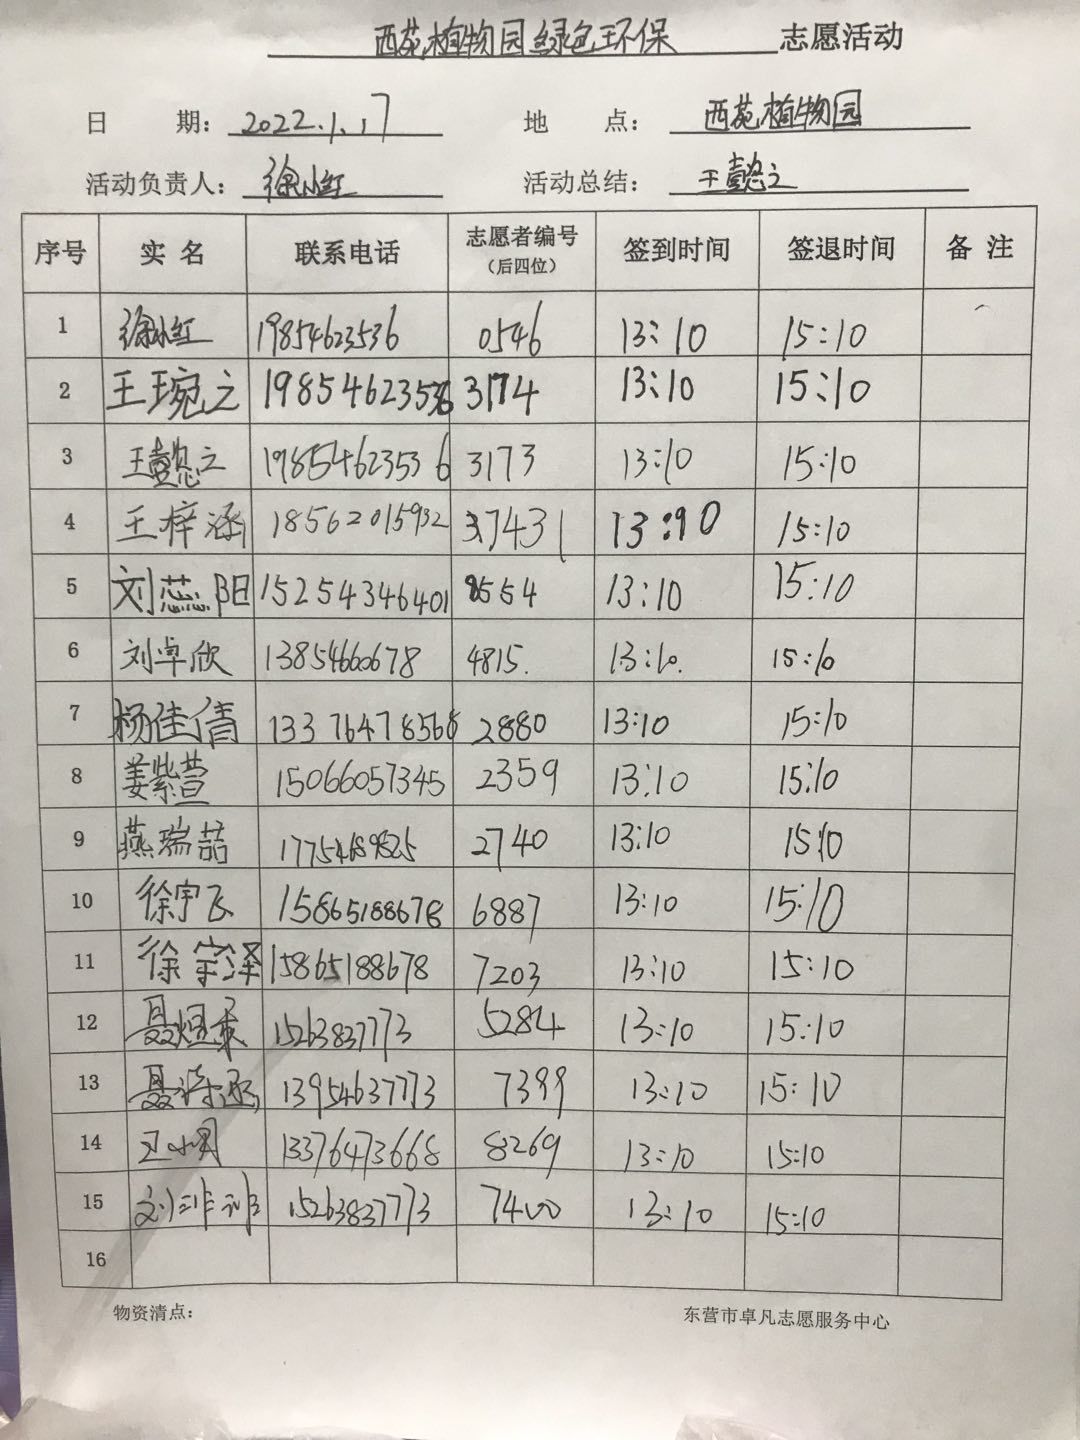 西苑植物园绿色环保 志愿活动
日 期: 2022.1.17 地 点: 西苑植物园
活动负责人: 徐小红 活动总结: 王懿之
序号 实名 联系电话 志愿者编号（后四位） 签到时间 签退时间 备注
1 徐小红 19854623536 0546 13:10 15:10
2 王琬之 19854623536 3174 13:10 15:10
3 王懿之 19854623536 3173 13:10 15:10
4 王梓涵 18562015932 13:10 15:10
5 刘蕊阳 15254346401 8554 13:10 15:10
6 刘卓欣 13854660678 4815. 13:10. 15:10
7 杨佳倩 13376478568 2880 13:10 15:10
8 姜紫萱 15066057345 2359 13:10 15:10
9 燕瑞喆 2740 13:10 15:10
10 徐宇飞 15865188678 6887 13:10 15:10
11 徐宇泽 15865188678 7203 13:10 15:10
12 聂煜承 15263837773 5284 13:10 15:10
13 聂 13954637773 7399 13:10 15:10
14 13376473668 8269 13:10 15:10
15 刘 15263837773 7400 13:10 15:10
16
物资清点: 东营市卓凡志愿服务中心